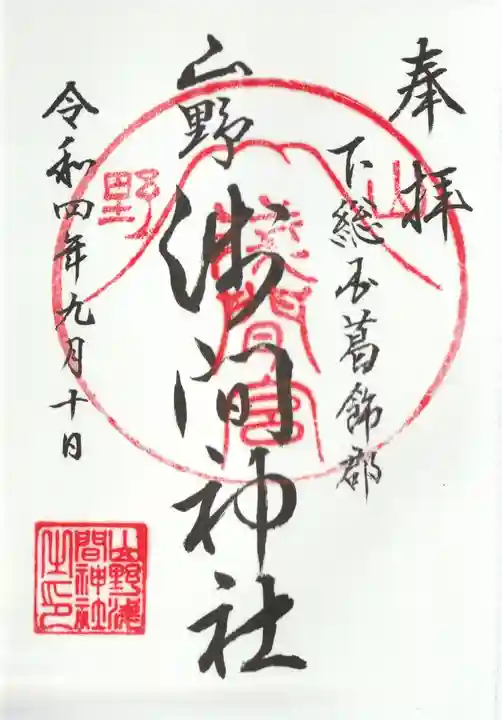 奉拝
下総国葛飾郡
山野
浅間神社
令和四年九月十日
山野
浅間宮
山野浅
間神社
之印